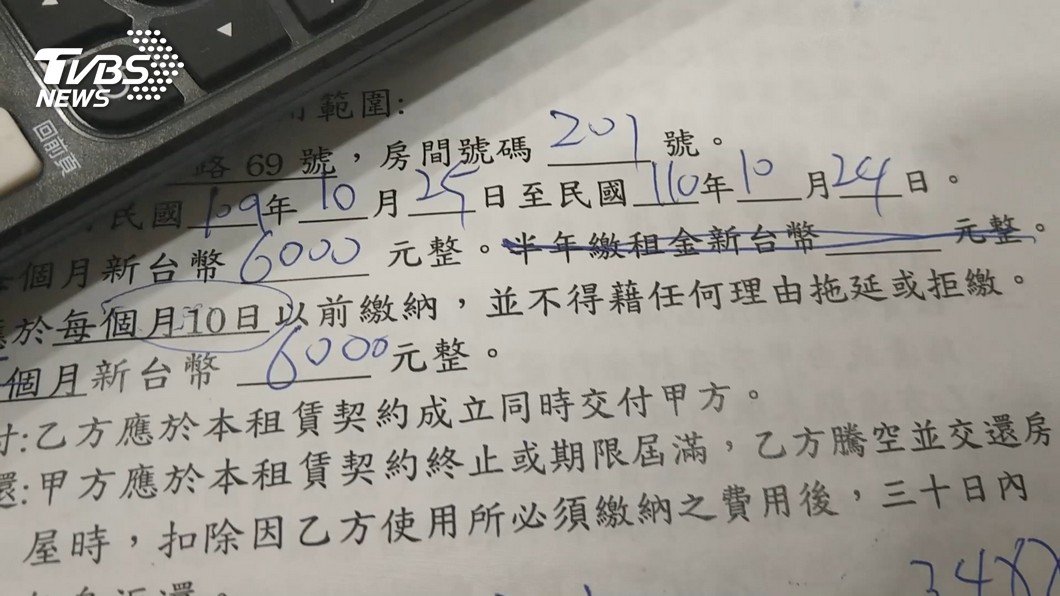 TVBS
NEWS
回前頁
範圍:
路 69 號，房間號碼 201 號。
民國 109 年 10 月 25 日至民國 110 年 10 月 24 日。
個月新台幣 6000 元整。半年繳租金新台幣 元整。
應於每個月10日以前繳納，並不得藉任何理由拖延或拒繳。
個月新台幣 6000 元整。
付:乙方應於本租賃契約成立同時交付甲方。
還:甲方應於本租賃契約終止或期限屆滿，乙方騰空並交還房
屋時，扣除因乙方使用所必須繳納之費用後，三十日內
返還。